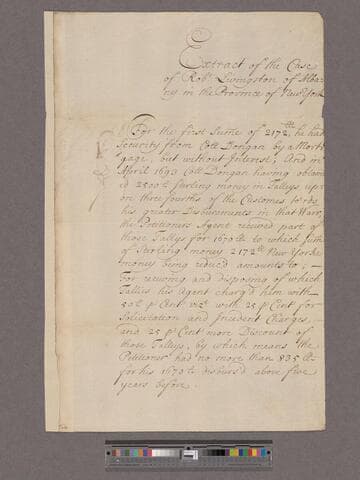 Extract of the Case
of Robt Livingston of Alba-
ny in the Province of New York
For the first sume of 2172 lb he had
Security from Coll Dongan by a Mort-
gage, but without Interest; And in
April 1693 Coll Dongan having obtain-
ed 2500lb Sterling money in Talleys upon
on three fourths of the Customes towards
his greater Disbursments in that Warr,
the Petitioners Agent received part of
those Talleys for 1670lb to which sum
of Sterling money 2172lb New Yorke
money being reduc'd amounts to;
For receiving and disposing of which
Tallies his Agent charg'd him with
50lb p Cent vizt with 25 p Cent for
Solicitation and Incident Charges,
and 25 p Cent more Discount of
those Talleys, by which means the
Petitioner had no more than 835lb
for his 1670lb disburs'd above five
years before.